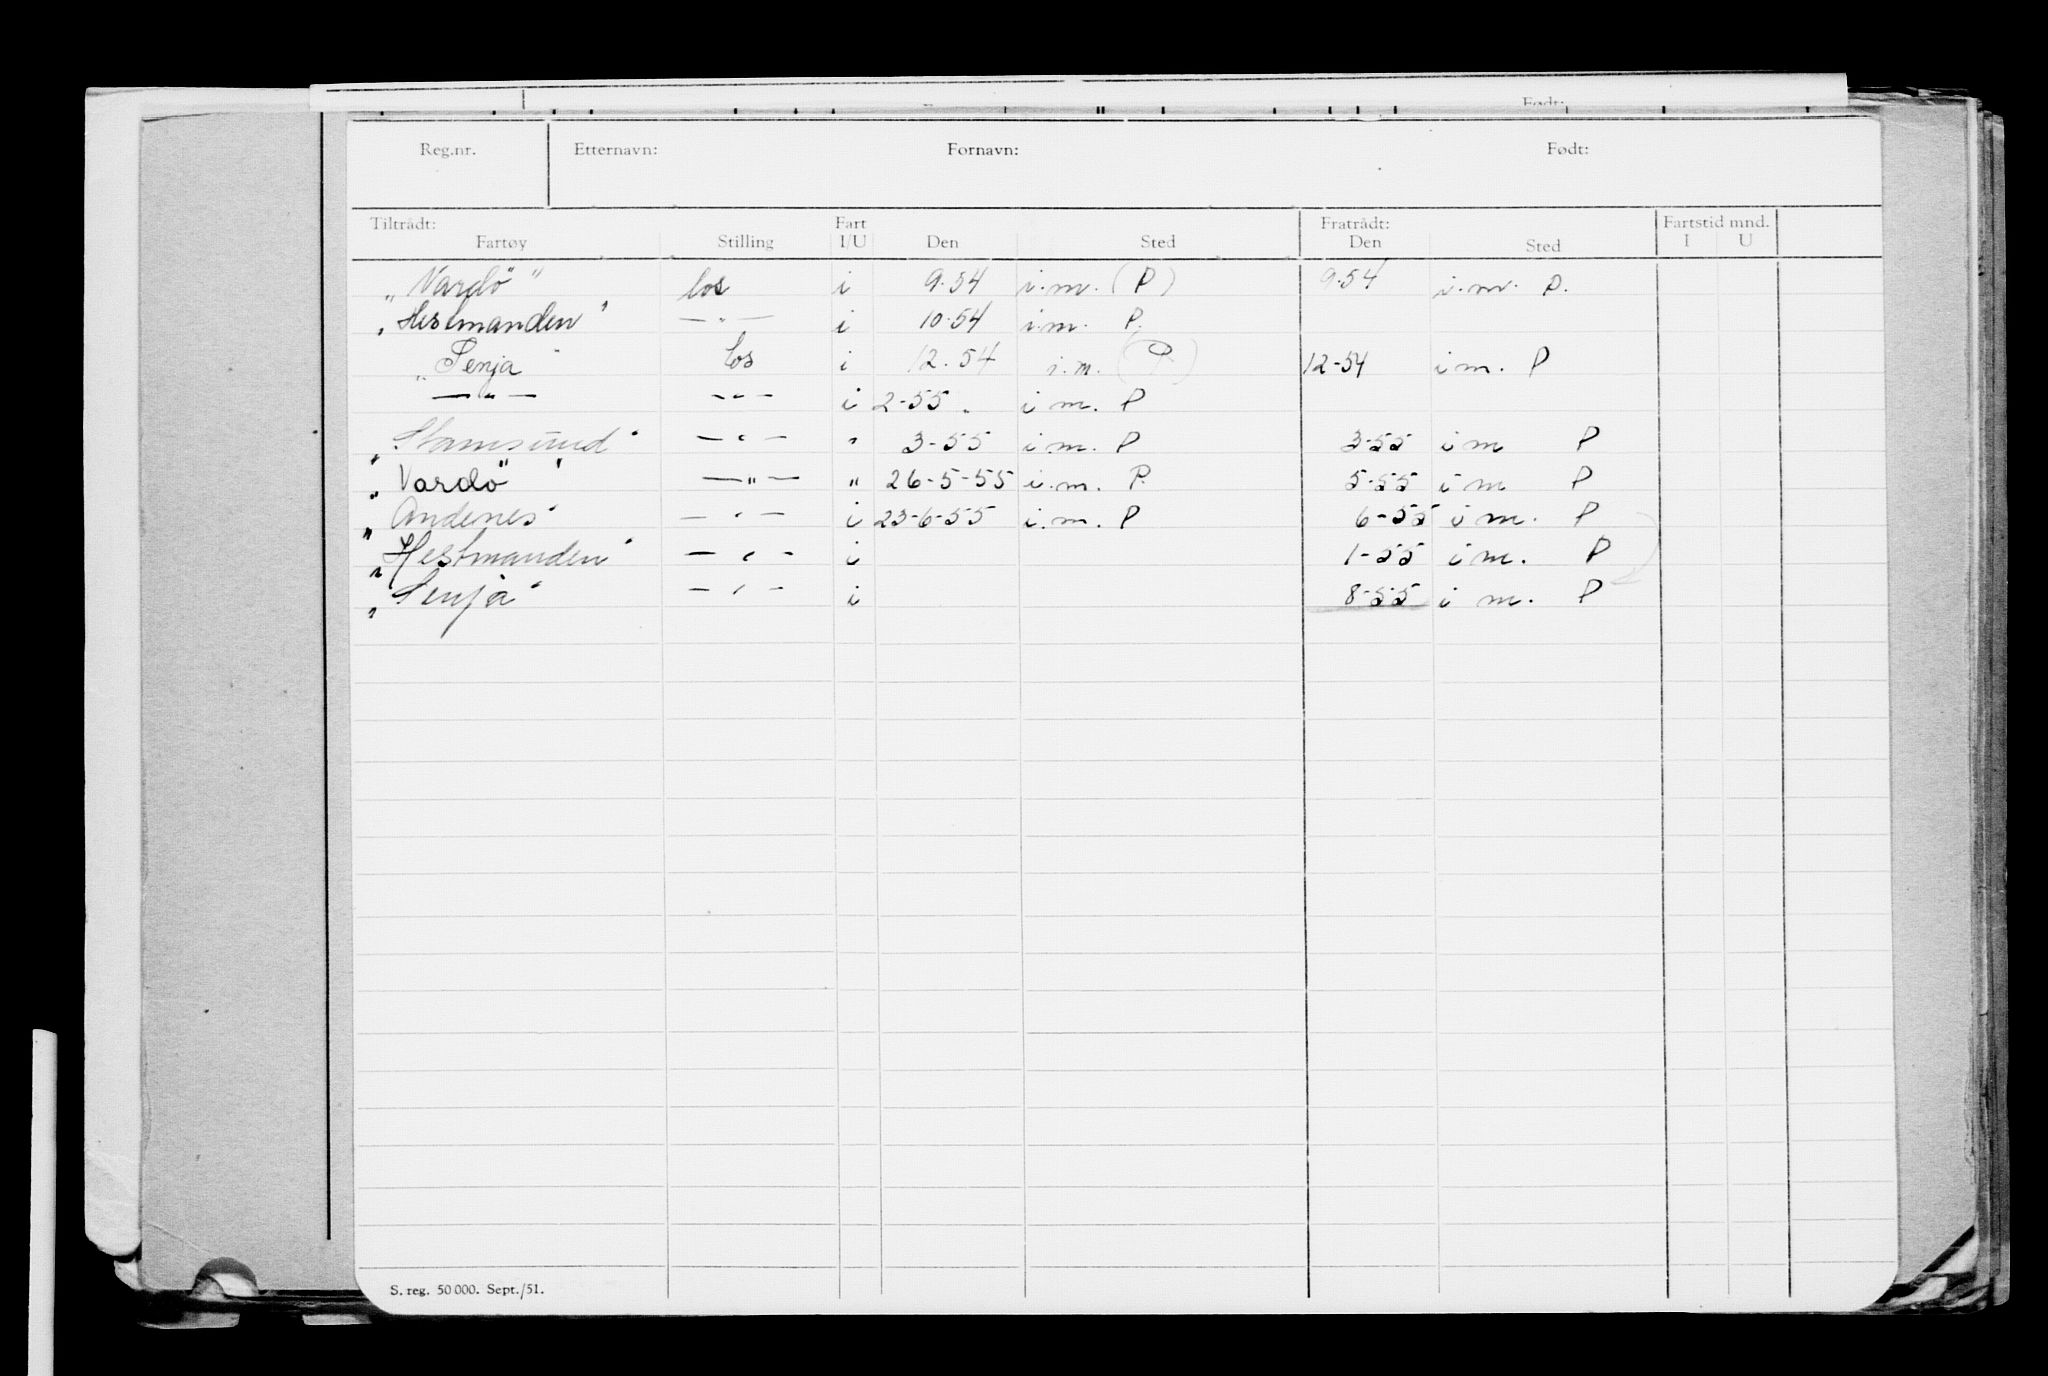 Født:
Reg.nr. Etternavn: Fornavn: Født:
Tiltrådt: Fart Fratrådt: Fartstid mnd.
Fartøy Stilling I/U Den Sted Den Sted I U
„Vardö" los i 9.54 i.m. (P) 9.54 i.m. P.
„Hestmanden" — " — i 10.54 i.m. P.
„Senja" los i 12.54 i.m. (P) 12-54 i m. P
— " — — " — i 2-55. i m. P
„Stamsund" — " — " 3-55 i m. P 3-55 i m P
„Vardö" — " — " 26-5-55 i.m. P. 5-55 i m P
„Andenes" — " — i 23-6-55 i.m. P 6-55 i m. P
„Hestmanden" — " — i 1-55 i m. P
„Senja" — " — i 8-55 i m. P
S. reg. 50 000. Sept./51.